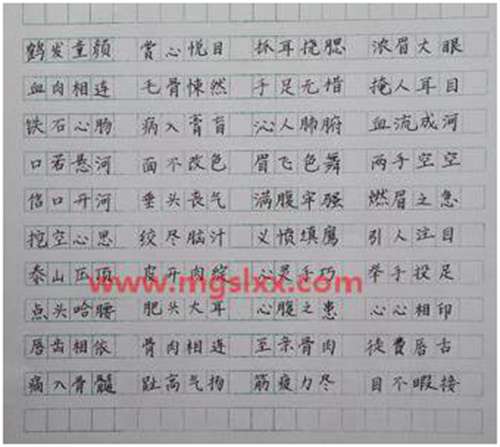 鹤发童颜 赏心悦目 抓耳挠腮 浓眉大眼
血肉相连 毛骨悚然 手足无措 掩人耳目
铁石心肠 病入膏肓 沁人肺腑 血流成河
口若悬河 面不改色 眉飞色舞 两手空空
信口开河 垂头丧气 满腹牢骚 燃眉之急
挖空心思 绞尽脑汁 义愤填膺 引人注目
泰山压顶 皮开肉绽 心灵手巧 举手投足
www.mgslxx.com
点头哈腰 肥头大耳 心腹之患 心心相印
唇齿相依 骨肉相连 至亲骨肉 徒费唇舌
痛入骨髓 趾高气扬 筋疲力尽 目不暇接